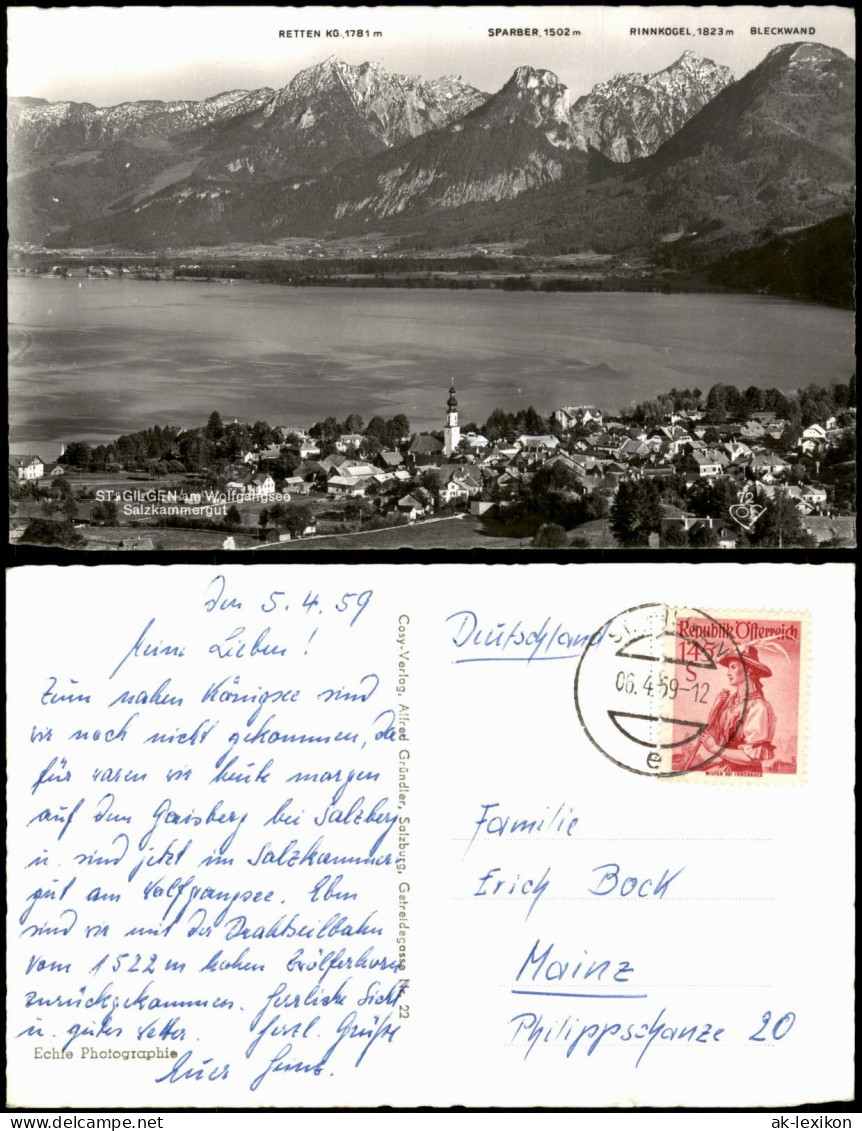 RETTEN KG. 1781 m
SPARBER, 1502 m
RINNKOGEL, 1823 m
BLECKWAND
ST. GILGEN am Wolfgangsee
Salzkammergut
Den 5.4.59
Meine Lieben!
Zum nahen Königsee sind
wir noch nicht gekommen, da
für waren wir heute morgen
auf dem Gaisberg bei Salzberg
u. sind jetzt im Salzkammer-
gut am Wolfgangsee. Eben
sind wir mit der Drahtseilbahn
vom 1522 m hohen Zwölferhorn
zurückgekommen. Herrliche Sicht
u. gutes Wetter. Herzl. Grüße
Euer Heinz.
Echte Photographie
Cosy-Verlag, Alfred Gründler, Salzburg, Getreidegasse Nr. 22
Deutschland
06.4.59-12
e
Republik Österreich
1.45
S
WILTEN BEI INNSBRUCK
Familie
Erich Bock
Mainz
Philippschanze 20
ak-lexikon